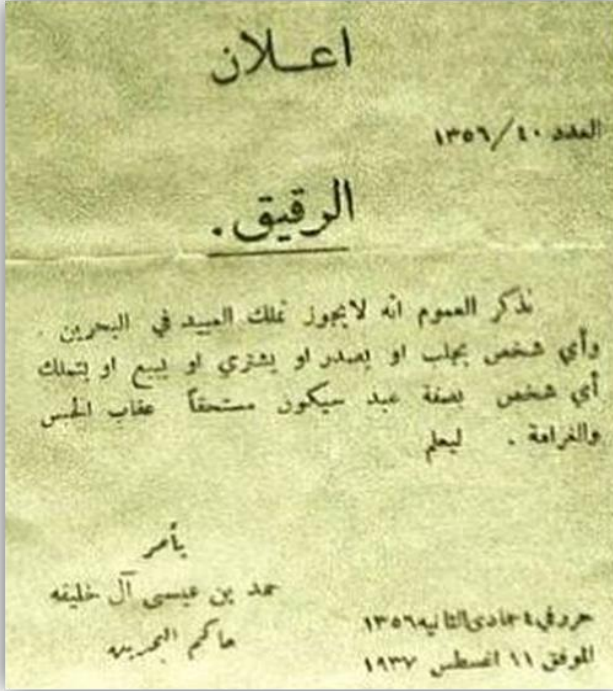 اعــلان
العدد ٤٠/١٣٥٦
الرقيق.
نذكر العموم انه لايجوز تملك العبيد في البحرين.
وأي شخص يجلب او يصدر او يشتري او يبيع او يتملك
أي شخص بصفة عبد سيكون مستحقاً عقاب الحبس
والغرامة. ليعلم
بأمر
حمد بن عيسى آل خليفه
حاكم البحرين
حرر في ٤ جمادى الثانيه ١٣٥٦
الموفق ١١ اغسطس ١٩٣٧